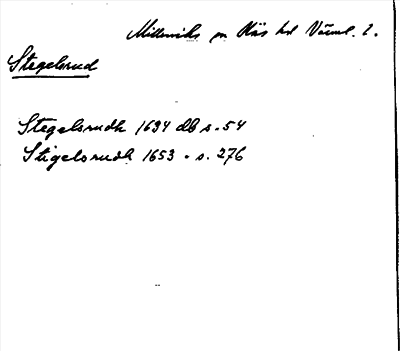 Millesviks sn Näs hd Värml. l.
Stegelsrud
Stegelsrudh 1634 db s. 54
Stigelsrudh 1653 " s. 276